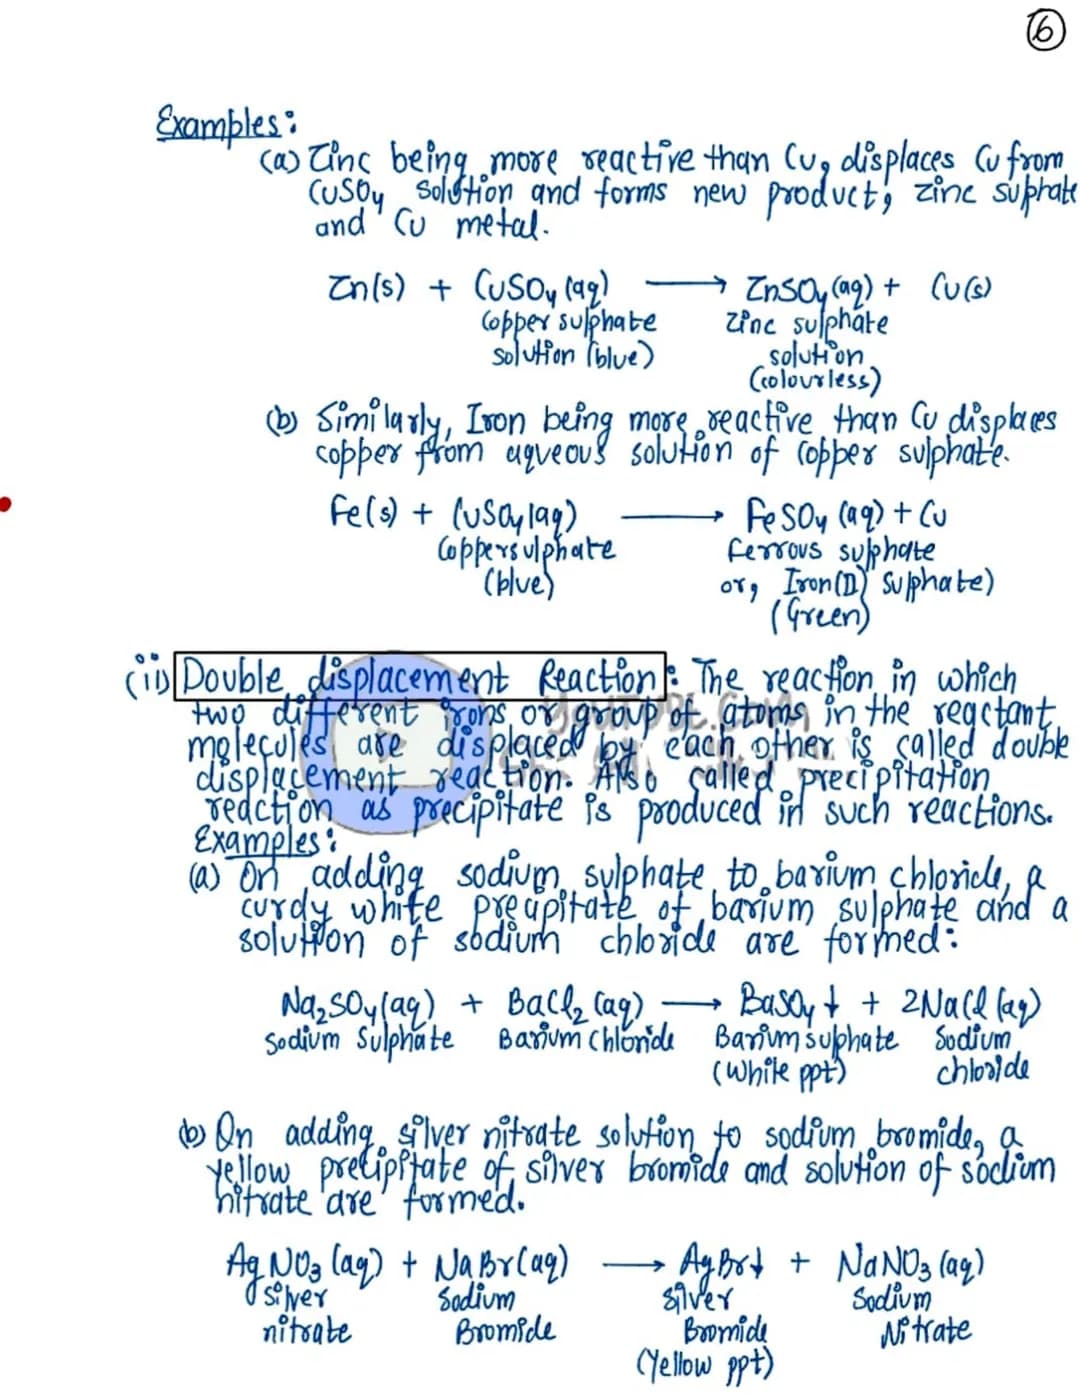 6
Examples:
(a) Zinc being more reactive than Cu, displaces Cu from
CuSO4 Solution and forms new product, zinc suphate
and Cu metal.
Zn(s) + CuSO4 (aq) → ZnSO4 (aq) + Cu(s)
Copper sulphate Zinc sulphate
solution (blue) solution
(colourless)
(b) Similarly, Iron being more reactive than Cu displaces
copper from aqveous solution of copper sulphate.
Fe(s) + CuSO4(aq) → FeSO4 (aq) + Cu
Coppersulphate Ferrous sulphate
(blue) or, Iron(II) Sulphate)
(Green)
(ii) Double displacement Reaction: The reaction in which
two different irons or group of atoms in the reactant
molecules are displaced by each other is called double
displacement reaction. Also called precipitation
reaction as precipitate is produced in such reactions.
Examples:
(a) On adding sodium sulphate to barium chloride, a
curdy white precipitate of barium sulphate and a
solution of sodium chloride are formed:
Na2SO4(aq) + BaCl2 (aq) → BaSO4↓ + 2NaCl (aq)
Sodium Sulphate Barium Chloride Barium sulphate Sodium
(White ppt) chloride
(b) On adding silver nitrate solution to sodium bromide, a
yellow precipitate of silver bromide and solution of sodium
nitrate are formed.
AgNO3 (aq) + NaBr(aq) → AgBr↓ + NaNO3 (aq)
silver Sodium Silver Sodium
nitrate Bromide Bromide Nitrate
(Yellow ppt)